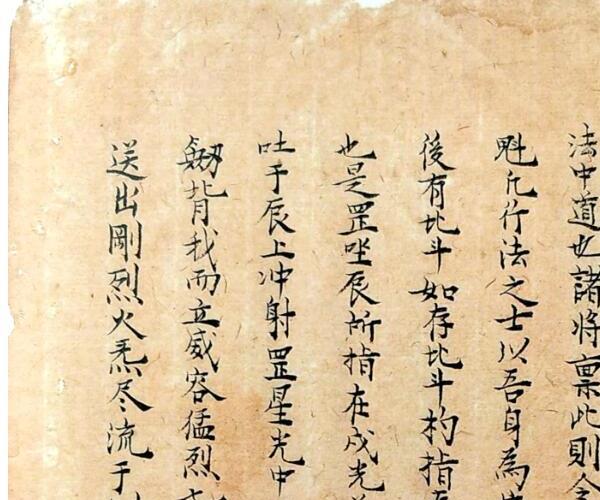 法中道也諸將稟此則令
魁凢行法之士以吾身為
後有北斗如存北斗杓指
也是罡坐辰所指在戌光
吐于辰上冲射罡星光中
劔背我而立威容猛烈
送出剛烈火炁尽流于